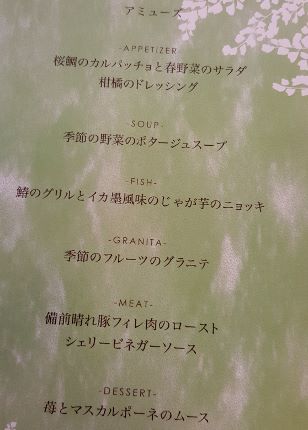 アミューズ
-APPETIZER
桜鯛のカルパッチョと春野菜のサラダ
柑橘のドレッシング
-SOUP-
季節の野菜のポタージュスープ
-FISH-
鰆のグリルとイカ墨風味のじゃが芋のニョッキ
-GRANITA-
季節のフルーツのグラニテ
-MEAT-
備前晴れ豚フィレ肉のロースト
シェリービネガーソース
-DESSERT-
苺とマスカルポーネのムース